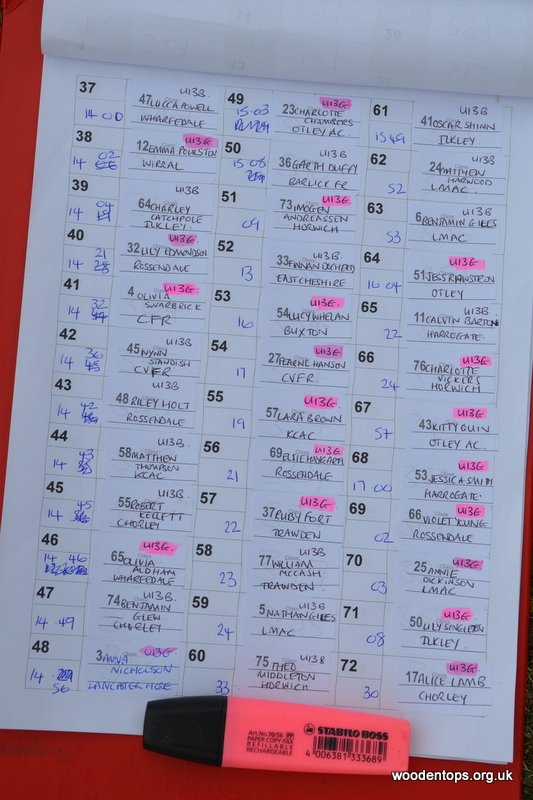 37
U13B
47 LUCCA POWELL
14 00
WHARFEDALE
38
U13G
12 EMMA POULSTON
14 02
WIRRAL
39
U13B
64 CHARLEY
14 04
CATCHPOLE
ILKLEY
40
U13G
32 LILY EDMONDSON
14 21
28
ROSSENDALE
41
U13G
4 OLIVIA
14 32
SWARBRICK
CFR
42
U13B
45 WYNN
14 36
STANDISH
CVFR
43
U13B
48 RILEY HOLT
14 42
ROSSENDALE
44
U13B.
58 MATTHEW
14 43
THOMPSON
KCAC
45
U13B.
55 ROBERT
14 45
KELLETT
CHORLEY
46
U13G.
14 46
65 OLIVIA
ALDHAM
WHARFEDALE
47
U13B.
74 BENJAMIN
14 49
GLEW
CHORLEY
48
U13G
3 ANNA
14
NICHOLSON
56
LANCASTER MORE
49
U13G
15 03
23 CHARLOTTE
CHAMBERS
OTLEY AC.
50
U13B
15 08
36 GARTH DUFFY
BARLICK FR
51
U13G.
73 IMOGEN
09
ANDREASSEN
HORWICH
52
U13B
33 FINNAN DOCHERTY
13
EAST CHESHIRE
53
U13G
54 LUCY WHELAN
16
BUXTON
54
U13G
27 PEARNE HANSON
17
CVFR
55
U13G
57 LARA BROWN
19
KCAC
56
U13G
69 ELSIE HAYGARTH
21
ROSSENDALE
57
U13G
37 RUBY FORT
22
TRAWDEN
58
U13B
77 WILLIAM
23
MCCASH
TRAWDEN
59
U13B
5 NATHAN GILES
24
LMAC
60
U13B
75 THEO
33
MIDDLETON
HORWICH
61
U13B
41 OSCAR SHINN
15 49
ILKLEY
62
U13B
24
52
HARWOOD
LMAC
63
U13B
6 BENJAMIN GILES
53
LMAC
64
U13G
51 JESS RAWSTRON
16 04
OTLEY
65
U13B
11 CALVIN BARTON
22
HARROGATE
66
U13G
76 CHARLOTTE
24
VICKERS
HORWICH
67
U13G
43 KITTY QUIN
57
OTLEY AC.
68
U13G
53 JESSICA SMITH
17 00
HARROGATE
69
U13G
66 VIOLET YOUNG
02
ROSSENDALE
70
U13G
25 ANNIE
03
DICKINSON
LMAC
71
U13G
50 LILY SINGLETON
08
ILKLEY.
72
U13G
17 ALICE LAMB
30
CHORLEY
Art.No 70/56
PAPER COPY-FAX
REFILLABLE
RECHARGEABLE
STABILO BOSS
4 006381 333689
woodentops.org.uk